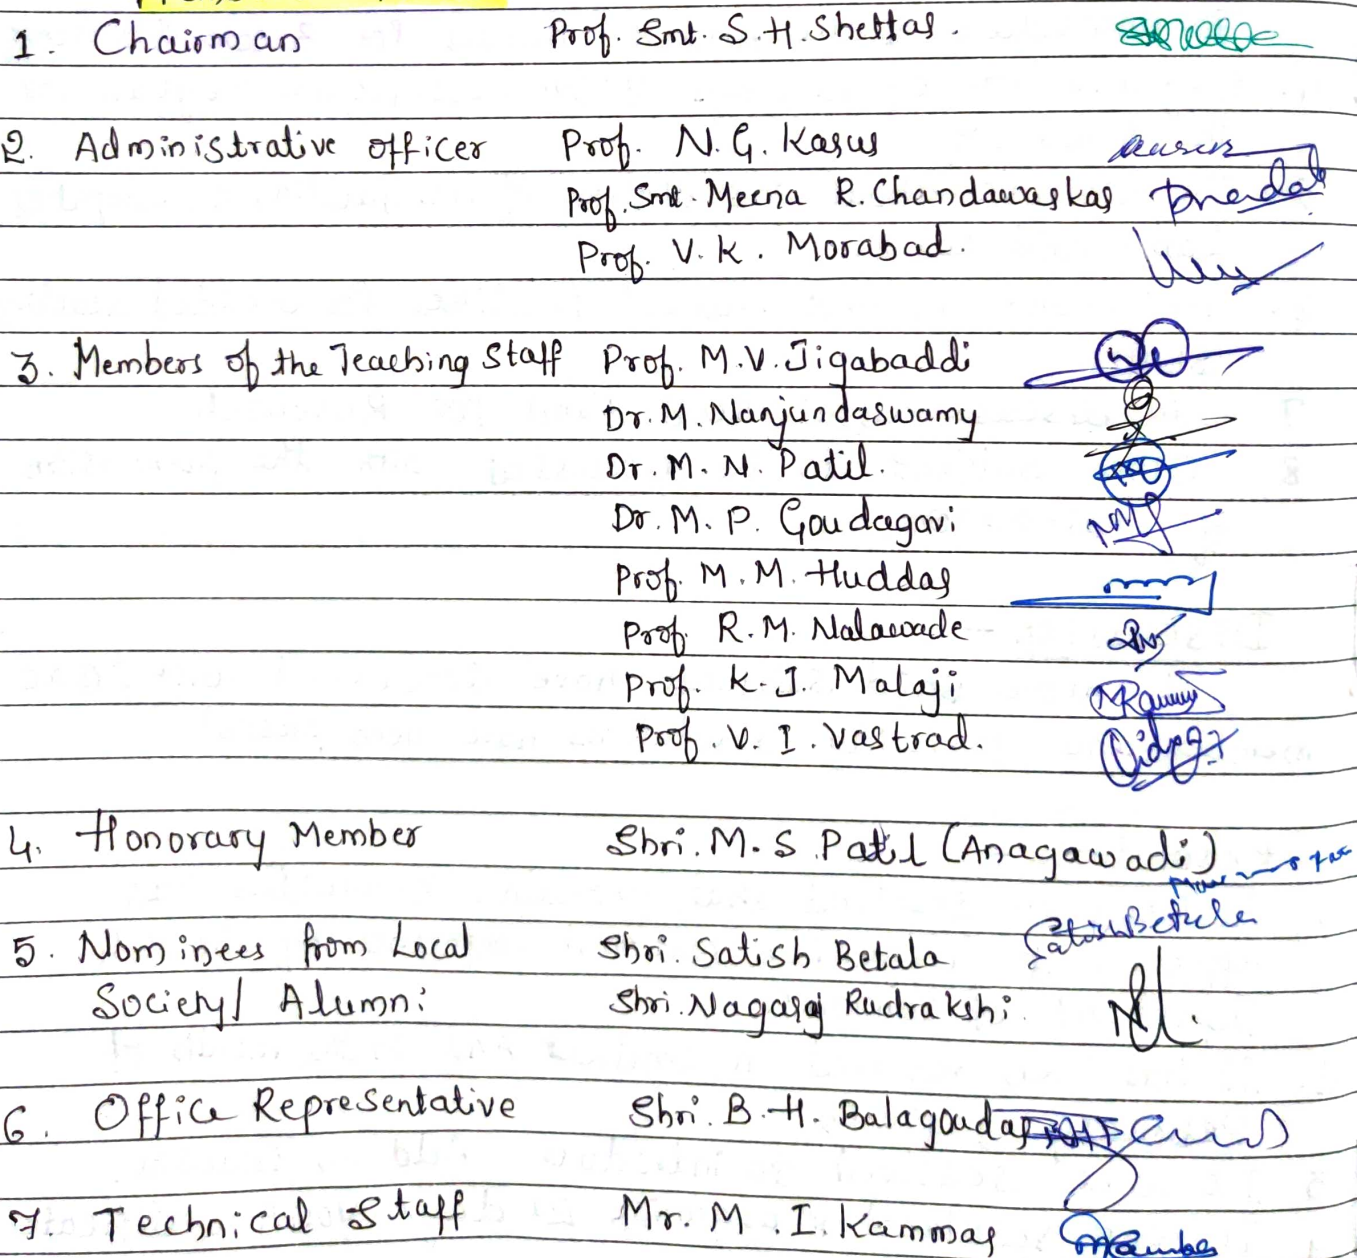 1. Chairman Prof. Smt. S.H. Shettar.
2. Administrative officer Prof. N.G. Karur
Prof. Smt. Meena R. Chandawarkar
Prof. V.K. Morabad.
3. Members of the Teaching Staff Prof. M.V. Jigabaddi
Dr. M. Nanjundaswamy
Dr. M. N. Patil.
Dr. M. P. Goudagavi
Prof. M.M. Huddar
Prof. R.M. Nalawade
Prof. K.J. Malaji
Prof. V. I. Vastrad.
4. Honorary Member Shri. M.S Patil (Anagawadi)
5. Nominees from Local Shri. Satish Betala Satish Betala
Society/ Alumni Shri. Nagaraj Rudrakshi
6. Office Representative Shri. B.H. Balagoudar
7. Technical Staff Mr. M.I. Kammar